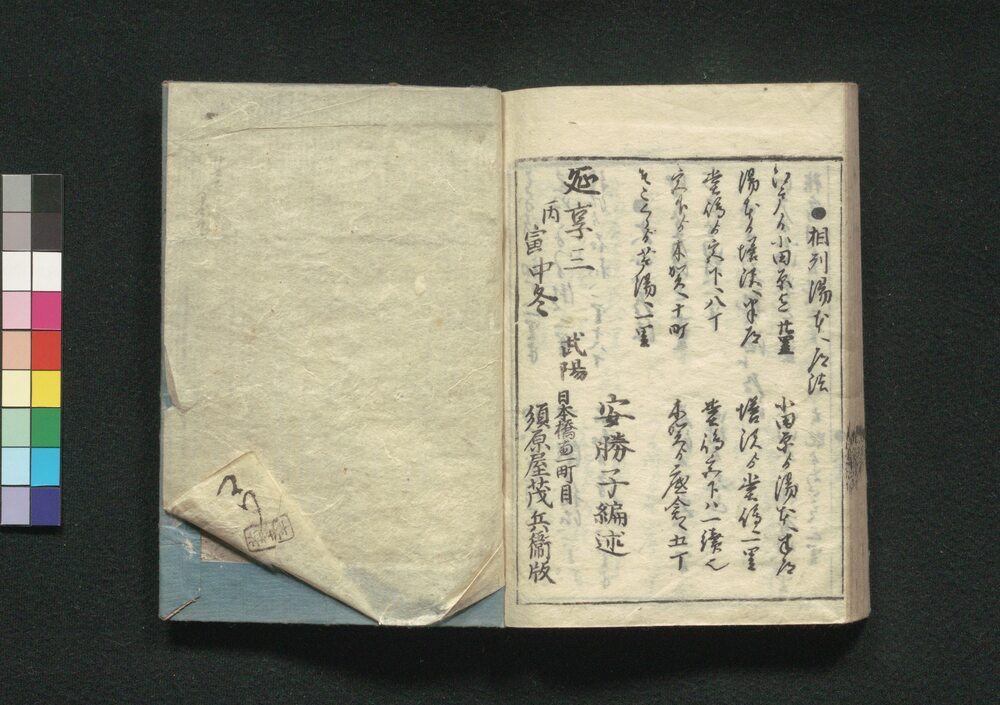 ●相列湯本へ道法
江戸ゟ小田原迄廿里 小田原ゟ湯本へ半道
湯本ゟ塔沢へ半道 塔沢ゟ堂嶋へ一里
堂嶋ゟ宮下へ八丁 堂嶋宮下ハ一續也
宮下ゟ木賀へ十町 木賀ゟ底倉五丁
そこくらゟ芦湯へ一里
安勝子編述
延享三
丙寅中冬
武陽
日本橋南一町目
須原屋茂兵衞版